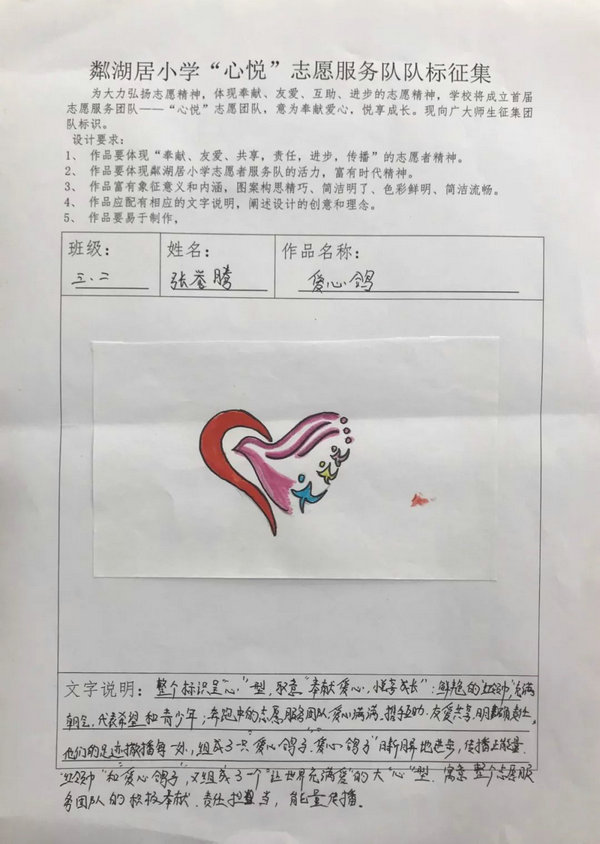 粼湖居小学“心悦”志愿服务队队标征集
为大力弘扬志愿精神，体现奉献、友爱、互助、进步的志愿精神，学校将成立首届
志愿服务团队——“心悦”志愿团队，意为奉献爱心，悦享成长。现向广大师生征集团
队标识。
设计要求：
1、 作品要体现“奉献、友爱、共享，责任，进步，传播”的志愿者精神。
2、 作品要体现粼湖居小学志愿者服务队的活力，富有时代精神。
3、 作品富有象征意义和内涵，图案构思精巧、简洁明了、色彩鲜明、简洁流畅。
4、 作品应配有相应的文字说明，阐述设计的创意和理念。
5、 作品要易于制作，
班级： 姓名： 作品名称：
三、二 张誉腾 爱心鸽
文字说明： 整个标识呈“心”型，取意“奉献爱心，悦享成长”：鲜艳的“红领巾”充满
朝气，代表希望和青少年；奔跑中的志愿服务团队，爱心满满，携手互助，友爱共享，肩负责任，
他们的足迹撒播每一处，组成了一只“爱心鸽子”，“爱心鸽子”日新月异地进步，传播正能量.
“红领巾”和“爱心鸽子”，又组成了一个“让世界充满爱”的大“心”型.寓意整个志愿服
务团队的积极奉献.责任担当，能量传播.